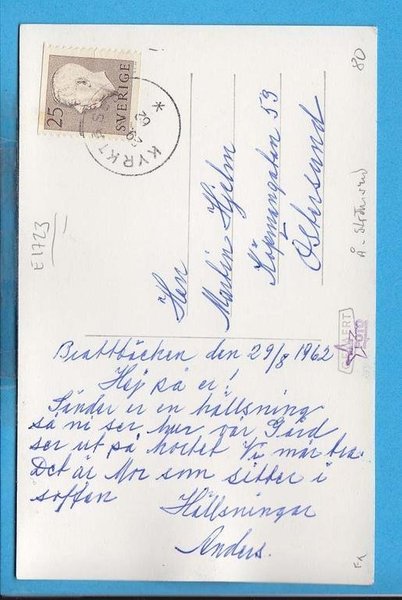 25
SVERIGE
KYRKT
29
62
80
E1723
Herr
Martin Hjelm
Köpmangatan 53
Östersund
GEVAERT
FOTO
Brattbäcken den 29/8 1962
Hej på er!
Sänder er en hällsning
så ni ser hur vår Gård
ser ut på kortet Vi mår bra.
Det är Mor som sitter i
soffan
Hällsningar
Anders.